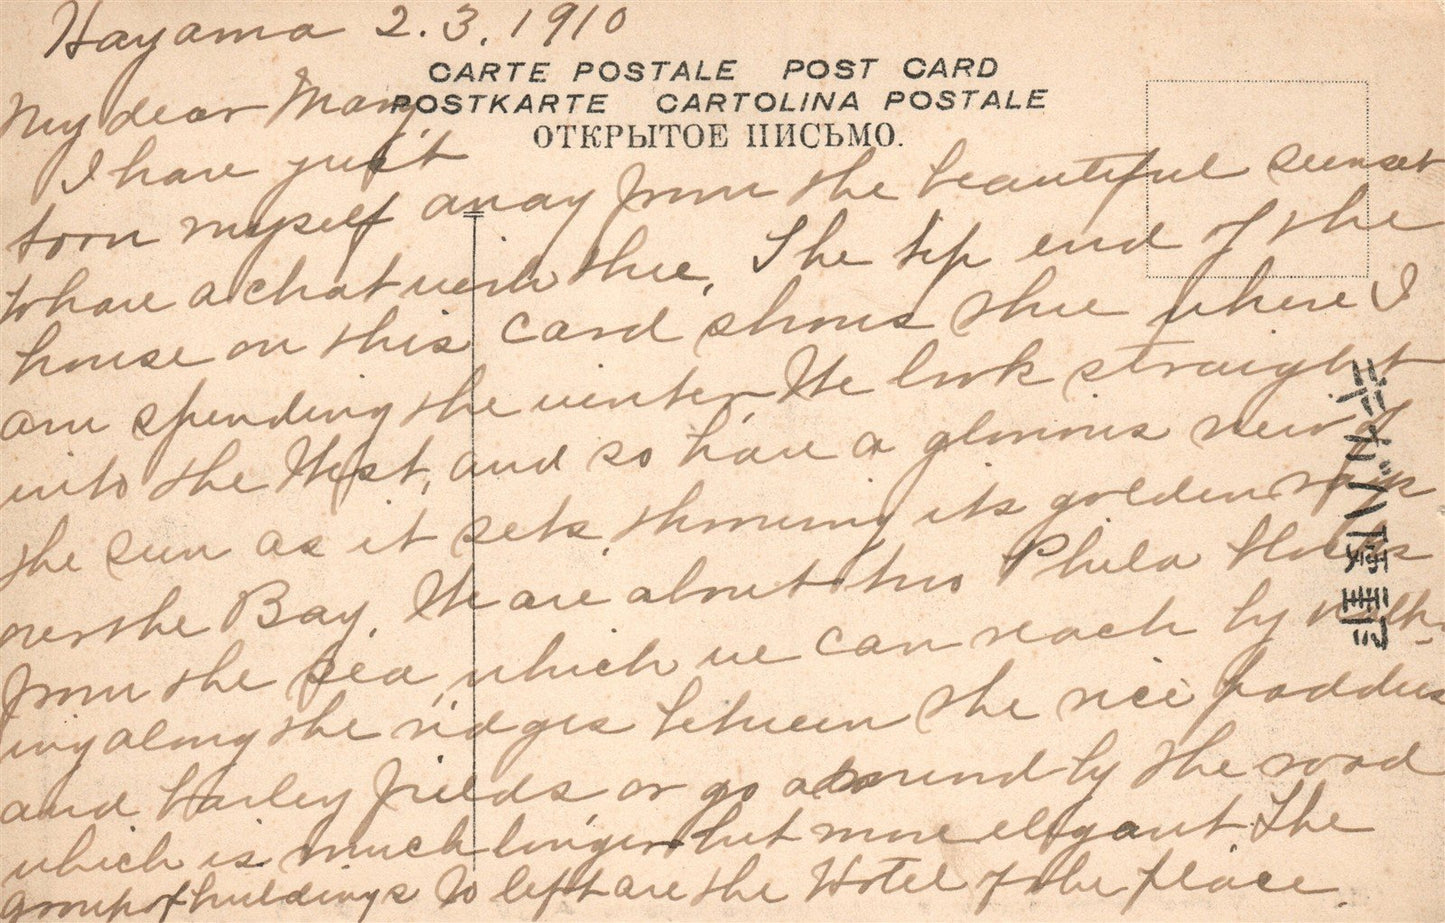 Hayama 2.3.1910
CARTE POSTALE POST CARD
POSTKARTE CARTOLINA POSTALE
ОТКРЫТОЕ ПИСЬМО.
My dear Mary,
I have just
torn myself away from the beautiful sunset
to have a chat with thee. The tip end of the
house on this card shows thee where I
am spending the winter. We look straight
into the West, and so have a glorious view of
the sun as it sets, throwing its golden rays
over the Bay. We are about two Phila blocks
from the sea, which we can reach by walk-
ing along the ridges between the rice paddies
and barley fields or go around by the road
which is much longer but more elegant. The
group of buildings to left are the Hotel of the place.